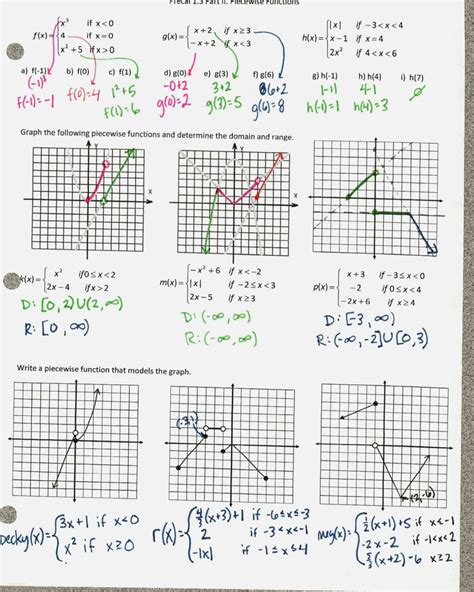 Precal 1.3 Part II: Piecewise Functions
f(x)= { x³ if x<0
4 if x=0
x²+5 if x>0
g(x)= { x+2, if x≥3
−x+2 if x<3
h(x)= { |x| if −3<x<4
x−1 if x=4
2x² if 4<x<6
a) f(-1) b) f(0) c) f(1) d) g(0) e) g(3) f) g(6) g) h(-1) h) h(4) i) h(7)
(-1)³ 1²+5 -0+2 3+2 6+2 |-1| 4-1 ∅
f(-1)=-1 f(0)=4 f(1)=6 g(0)=2 g(3)=5 g(6)=8 h(-1)=1 h(4)=3
Graph the following piecewise functions and determine the domain and range.
Y
X
Y
X
k(x)= { x² if0≤x<2
2x−4 ifx>2
m(x)= { −x²+6 if x<−2
|x| if −2≤x<3
2x−5 if x≥3
p(x)= { x+3 if−3≤x<0
−2 if 0≤x<4
−2x+6 if x≥4
D: [0,2)∪(2,∞)
R: [0,∞)
D: (-∞,∞)
R: (-∞,∞)
D: [-3,∞)
R: (-∞,-2]∪[0,3)
Write a piecewise function that models the graph.
(2,-6)
becky(x)= { 3x+1 if x<0
x² if x≥0
r(x)= { 4/3(x+3)+1 if -6≤x≤-3
2 if -3<x<-1
-|x| if -1≤x≤4
meg(x)= { 1/2(x+1)+5 if x≤-1
-2x-2 if -1<x<2
5/3(x+2)-6 x≥2